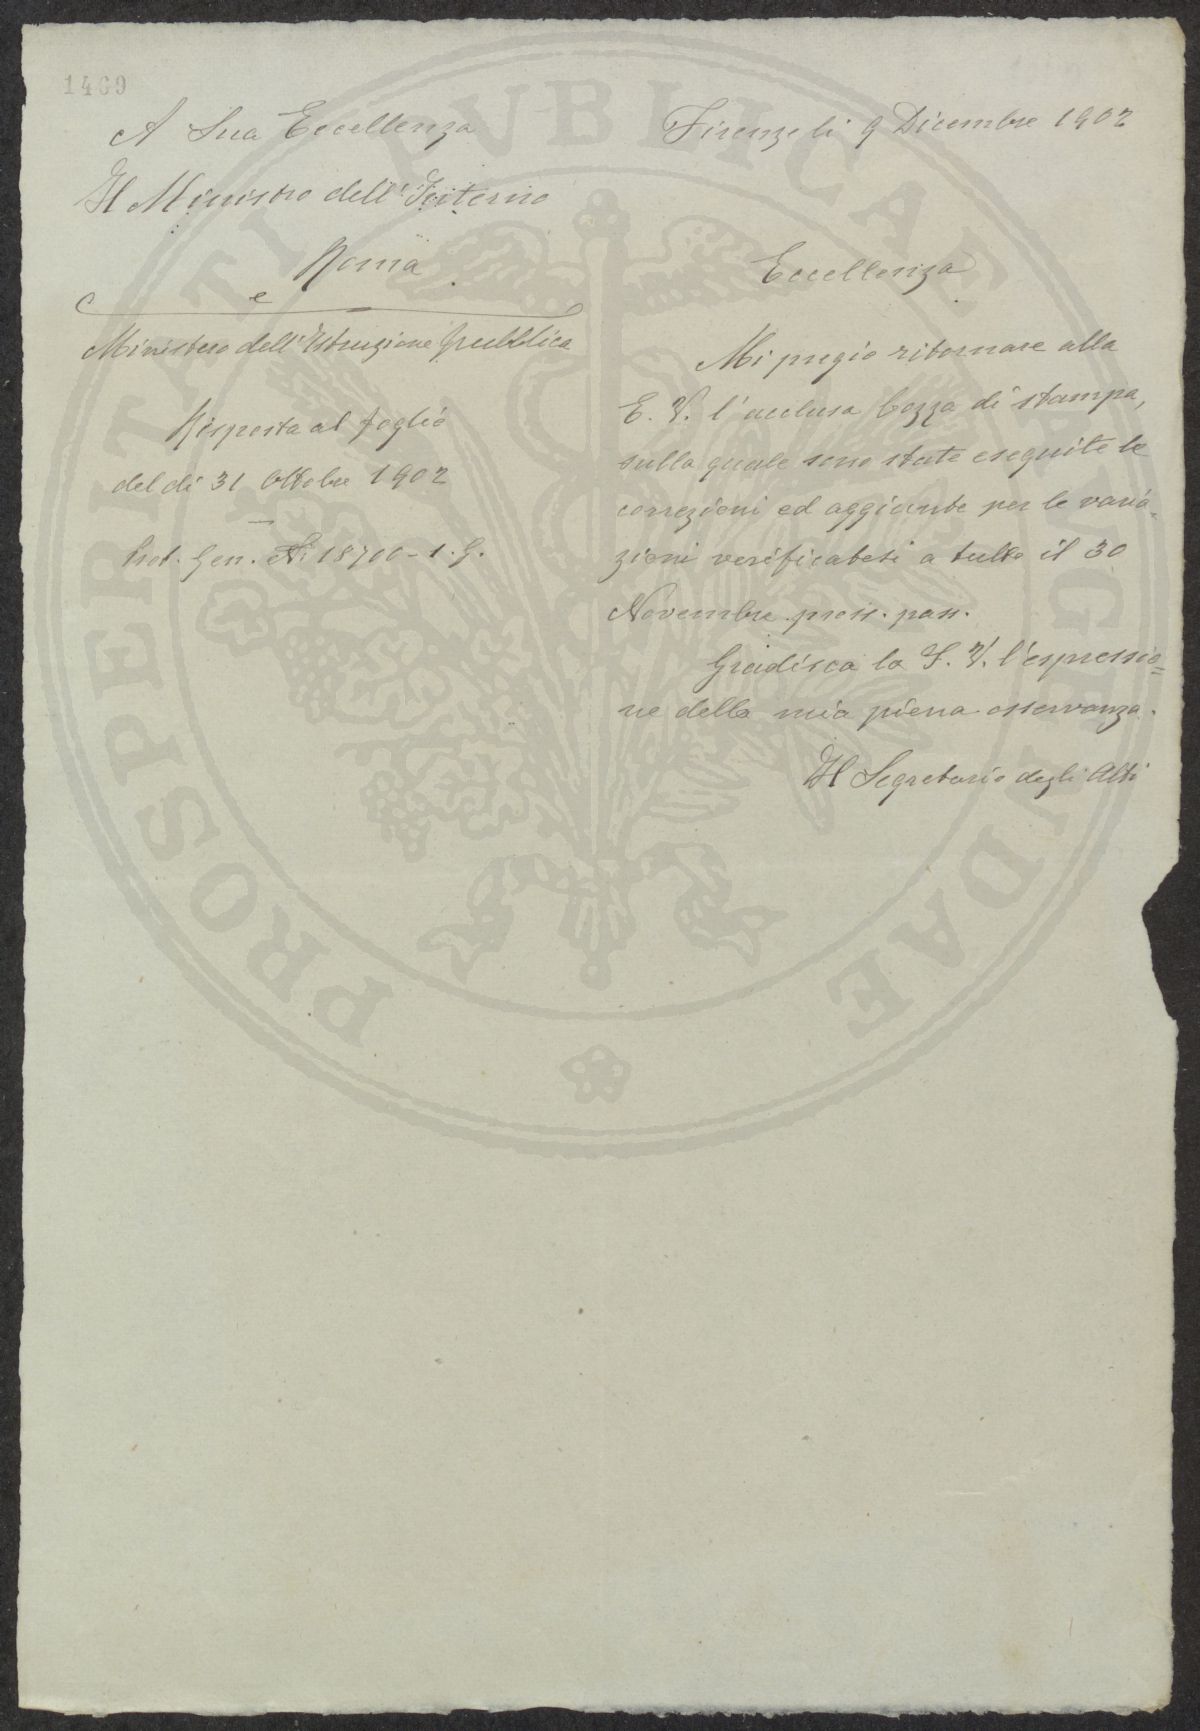 1469
A Sua Eccellenza
Il Ministro dell'Interno
Roma
e
Ministero dell'Istruzione pubblica
Risposta al foglio
del dì 31 Ottobre 1902
Prot. Gen. N: 18700-1.G.
Firenze li 9 Dicembre 1902
Eccellenza
Mi pregio ritornare alla
E. V. l'acclusa bozza di stampa,
sulla quale sono state eseguite le
correzioni ed aggiunte per le varia-
zioni verificatesi a tutto il 30
Novembre pross. pass.
Gradisca la S. V. l'espressio=
ne della mia piena osservanza.
Il Segretario degli Atti
PROSPERITATI PVBLICAE AVGENDAE